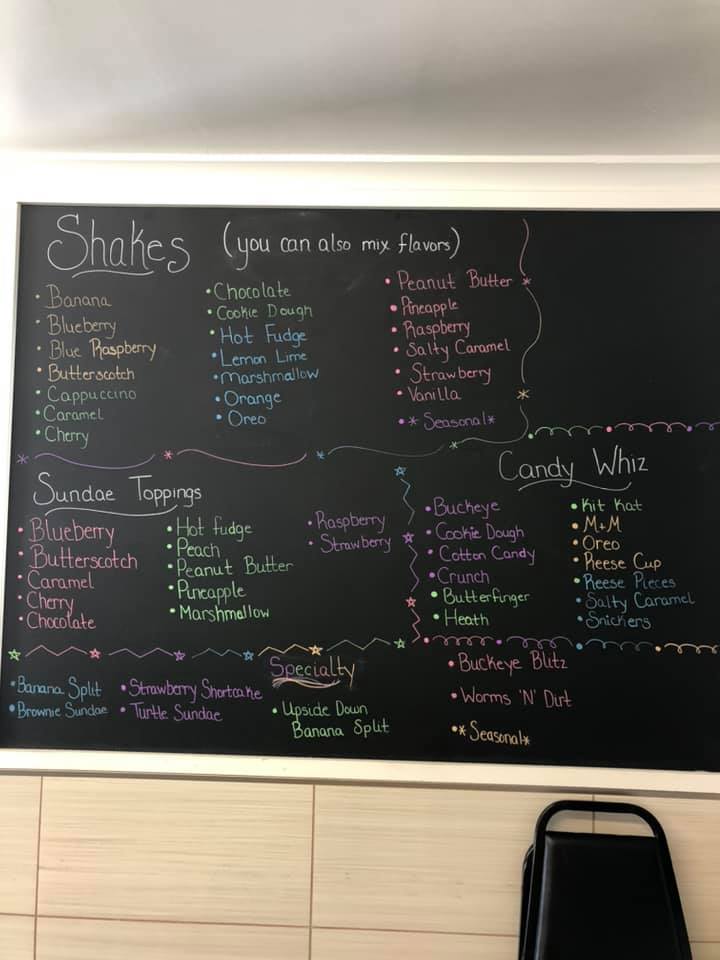 Shakes (you can also mix flavors)
• Banana
• Blueberry
• Blue Raspberry
• Butterscotch
• Cappuccino
• Caramel
• Cherry
• Chocolate
• Cookie Dough
• Hot Fudge
• Lemon Lime
• Marshmallow
• Orange
• Oreo
• Peanut Butter
• Pineapple
• Raspberry
• Salty Caramel
• Strawberry
• Vanilla
• *Seasonal*
Sundae Toppings
• Blueberry
• Butterscotch
• Caramel
• Cherry
• Chocolate
• Hot fudge
• Peach
• Peanut Butter
• Pineapple
• Marshmallow
• Raspberry
• Strawberry
Candy Whiz
• Buckeye
• Cookie Dough
• Cotton Candy
• Crunch
• Butterfinger
• Heath
• Kit Kat
• M+M
• Oreo
• Reese Cup
• Reese Pieces
• Salty Caramel
• Snickers
Specialty
• Banana Split
• Brownie Sundae
• Strawberry Shortcake
• Turtle Sundae
• Upside Down
Banana Split
• Buckeye Blitz
• Worms 'N' Dirt
• *Seasonal*